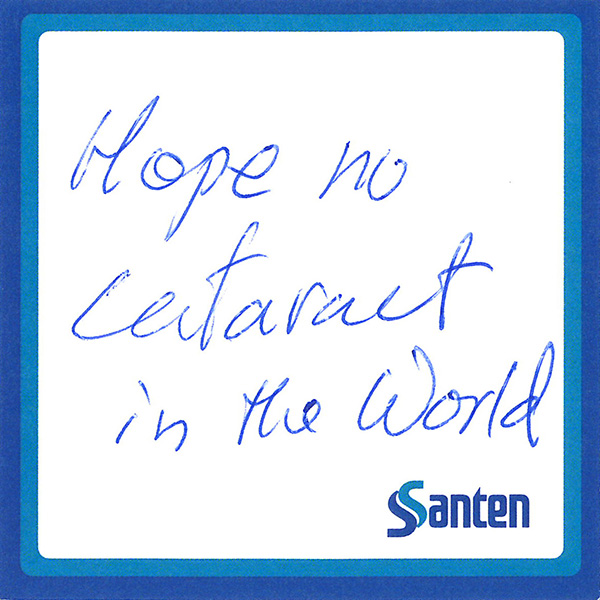 Hope no
cataract
in the World
Santen